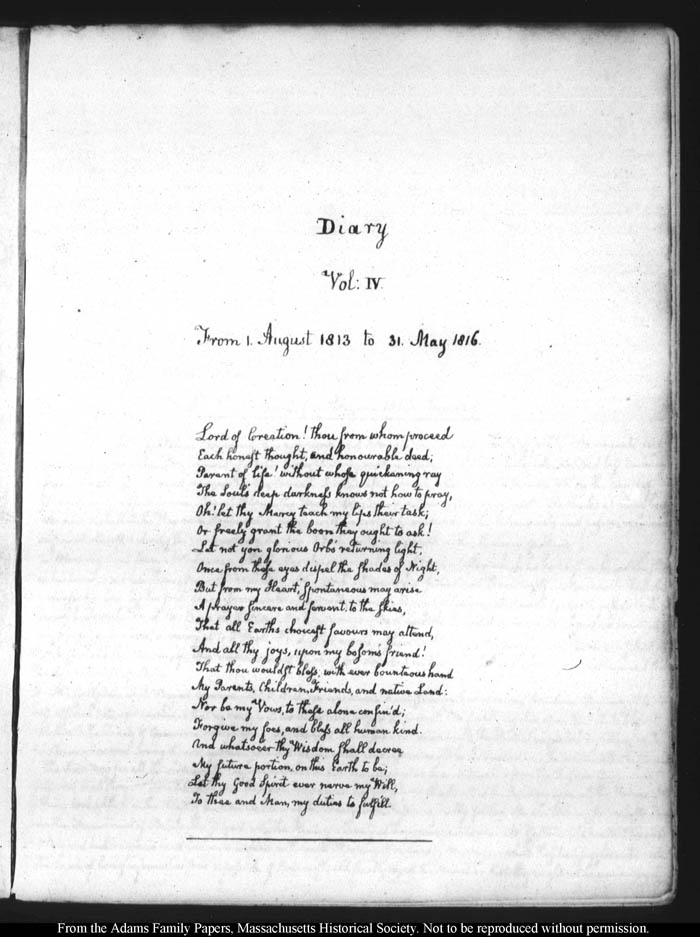 Diary
Vol: IV.
From 1. August 1813 to 31. May 1816.
Lord of Creation! thou from whom proceed
Each honest thought, and honourable deed;
Parent of life! without whose quickening ray
The Soul's deep darkness knows not how to pray,
Oh! let thy Mercy teach my lips their task;
Or freely grant the boon they ought to ask!
Let not yon glorious Orb's returning light,
Once from these eyes dispel the shades of Night,
But from my Heart, spontaneous may arise
A prayer sincere and fervent, to the skies,
That all Earth's choicest favours may attend,
And all thy joys, upon my bosom's friend!
That thou wouldst bless, with ever bounteous hand
My Parents, Children, Friends, and native Land:
Nor be my Vows, to these alone confin'd;
Forgive my foes, and bless all human kind.
And whatsoever thy Wisdom shall decree
My future portion, on this Earth to be;
Let thy Good Spirit ever nerve my Will,
To thee and Man, my duties to fulfill.
From the Adams Family Papers, Massachusetts Historical Society. Not to be reproduced without permission.